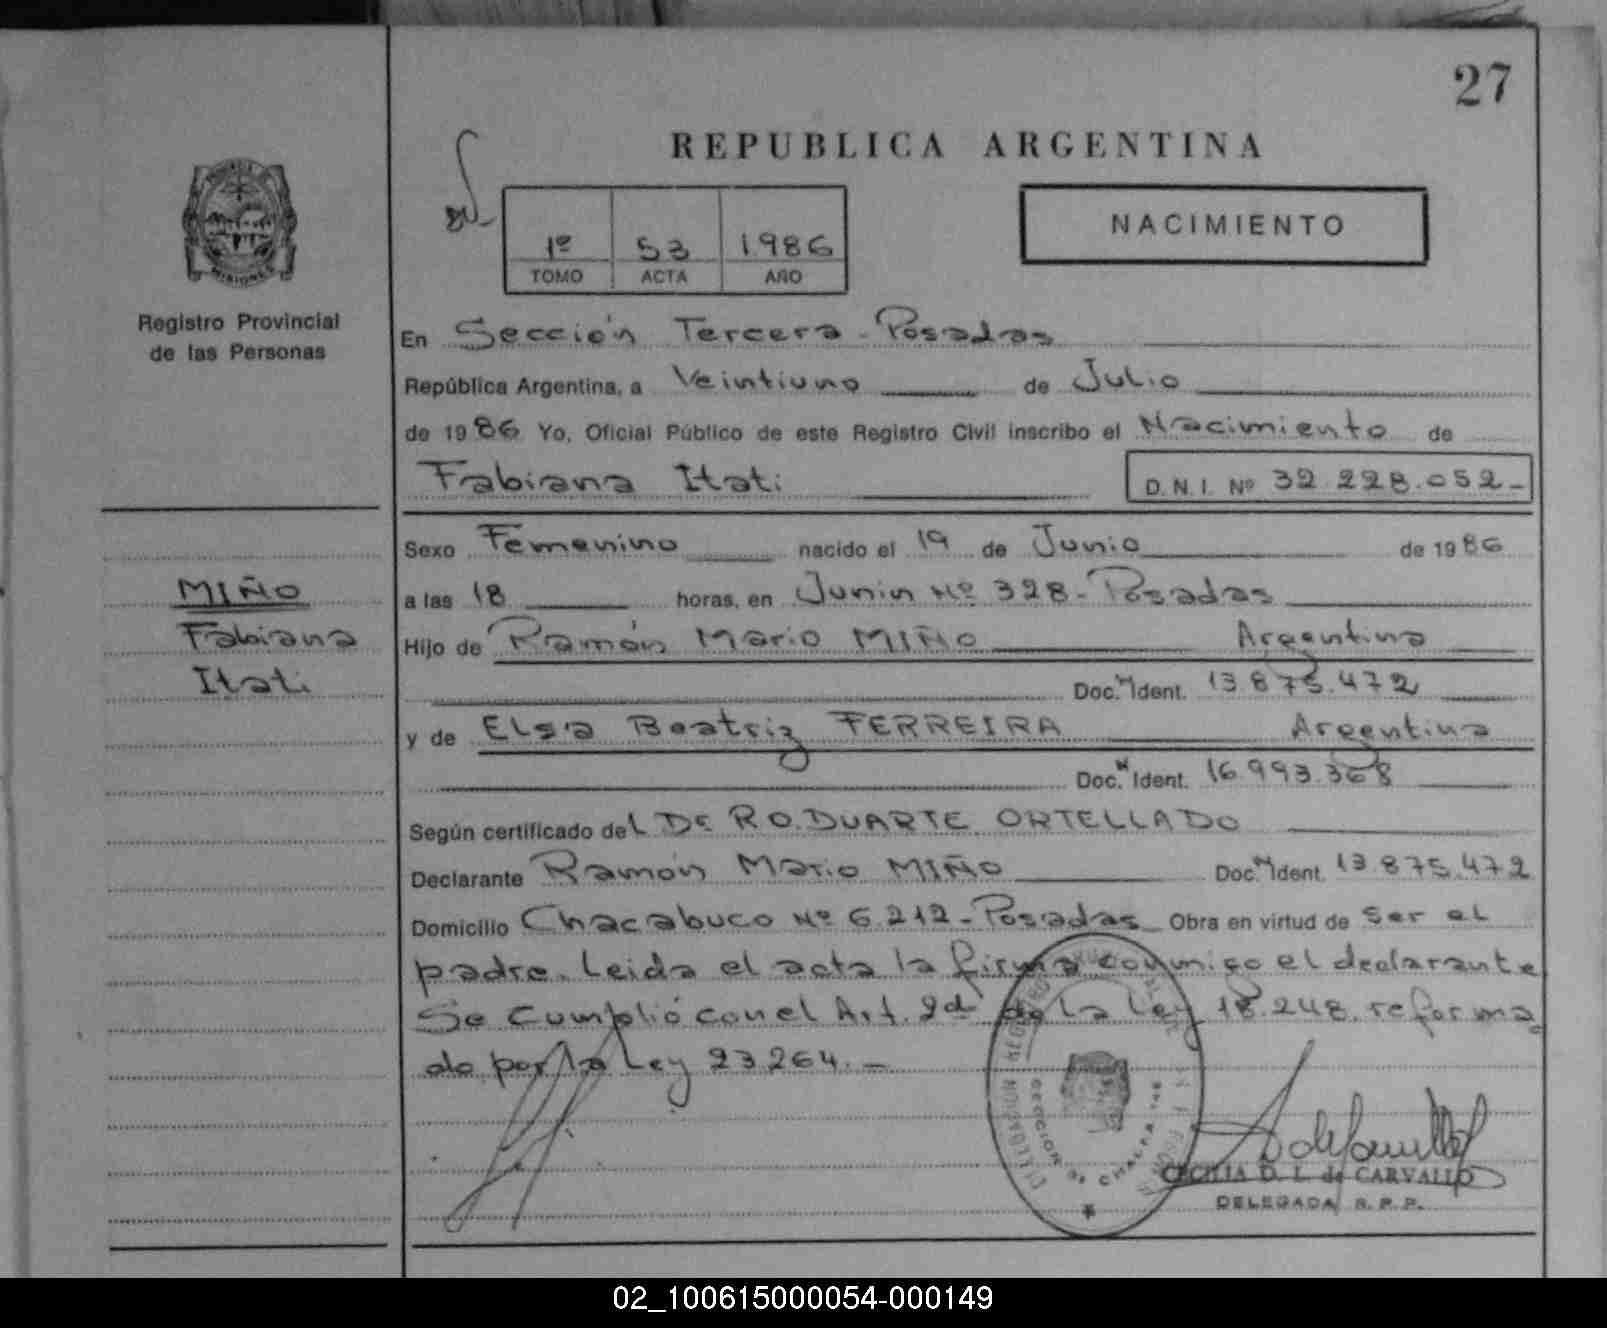 27
REPUBLICA ARGENTINA
1º 53 1986
TOMO ACTA AÑO
NACIMIENTO
MISIONES
Registro Provincial
de las Personas
En Sección Tercera - Posadas
República Argentina, a Veintiuno de Julio
de 1986 Yo, Oficial Público de este Registro Civil inscribo el Nacimiento de
Fabiana Itati D.N.I. Nº 32.228.052-
Sexo Femenino nacido el 19 de Junio de 1986
a las 18 horas, en Junin Nº 328 - Posadas
Hijo de Ramón Mario MIÑO Argentina
Doc. Ident. 13.875.472
y de Elsa Beatriz FERREIRA Argentina
Doc. Ident. 16.993.368
Según certificado del Dr. R O. DUARTE ORTELLADO
Declarante Ramón Mario MIÑO Doc. Ident. 13.875.472
Domicilio Chacabuco Nº 6.212 - Posadas Obra en virtud de ser el
padre. Leida el acta la firma conmigo el declarante
Se cumplió con el Art. 2d de la Ley 18.248. reforma
do por la Ley 23264. -
MIÑO
Fabiana
Itati
CECILIA D. L. de CARVALLO
DELEGADA R.P.P.
02_100615000054-000149